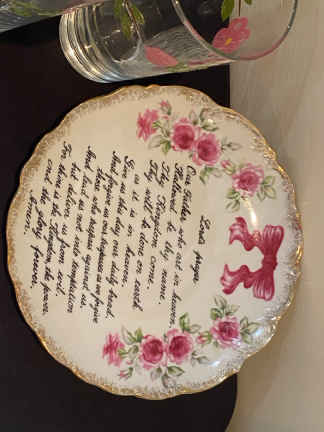 Lord's prayer.
Our Father who art in heaven
Hallowed be thy name.
Thy Kingdom come.
Thy will be done on earth
as it is in heaven.
Give us this day our daily bread.
And forgive us our trespasses as we forgive
those who trespass against us.
And lead us not into temptation
but deliver us from evil.
For thine is the Kingdom, the power,
and the glory, forever.
Amen.